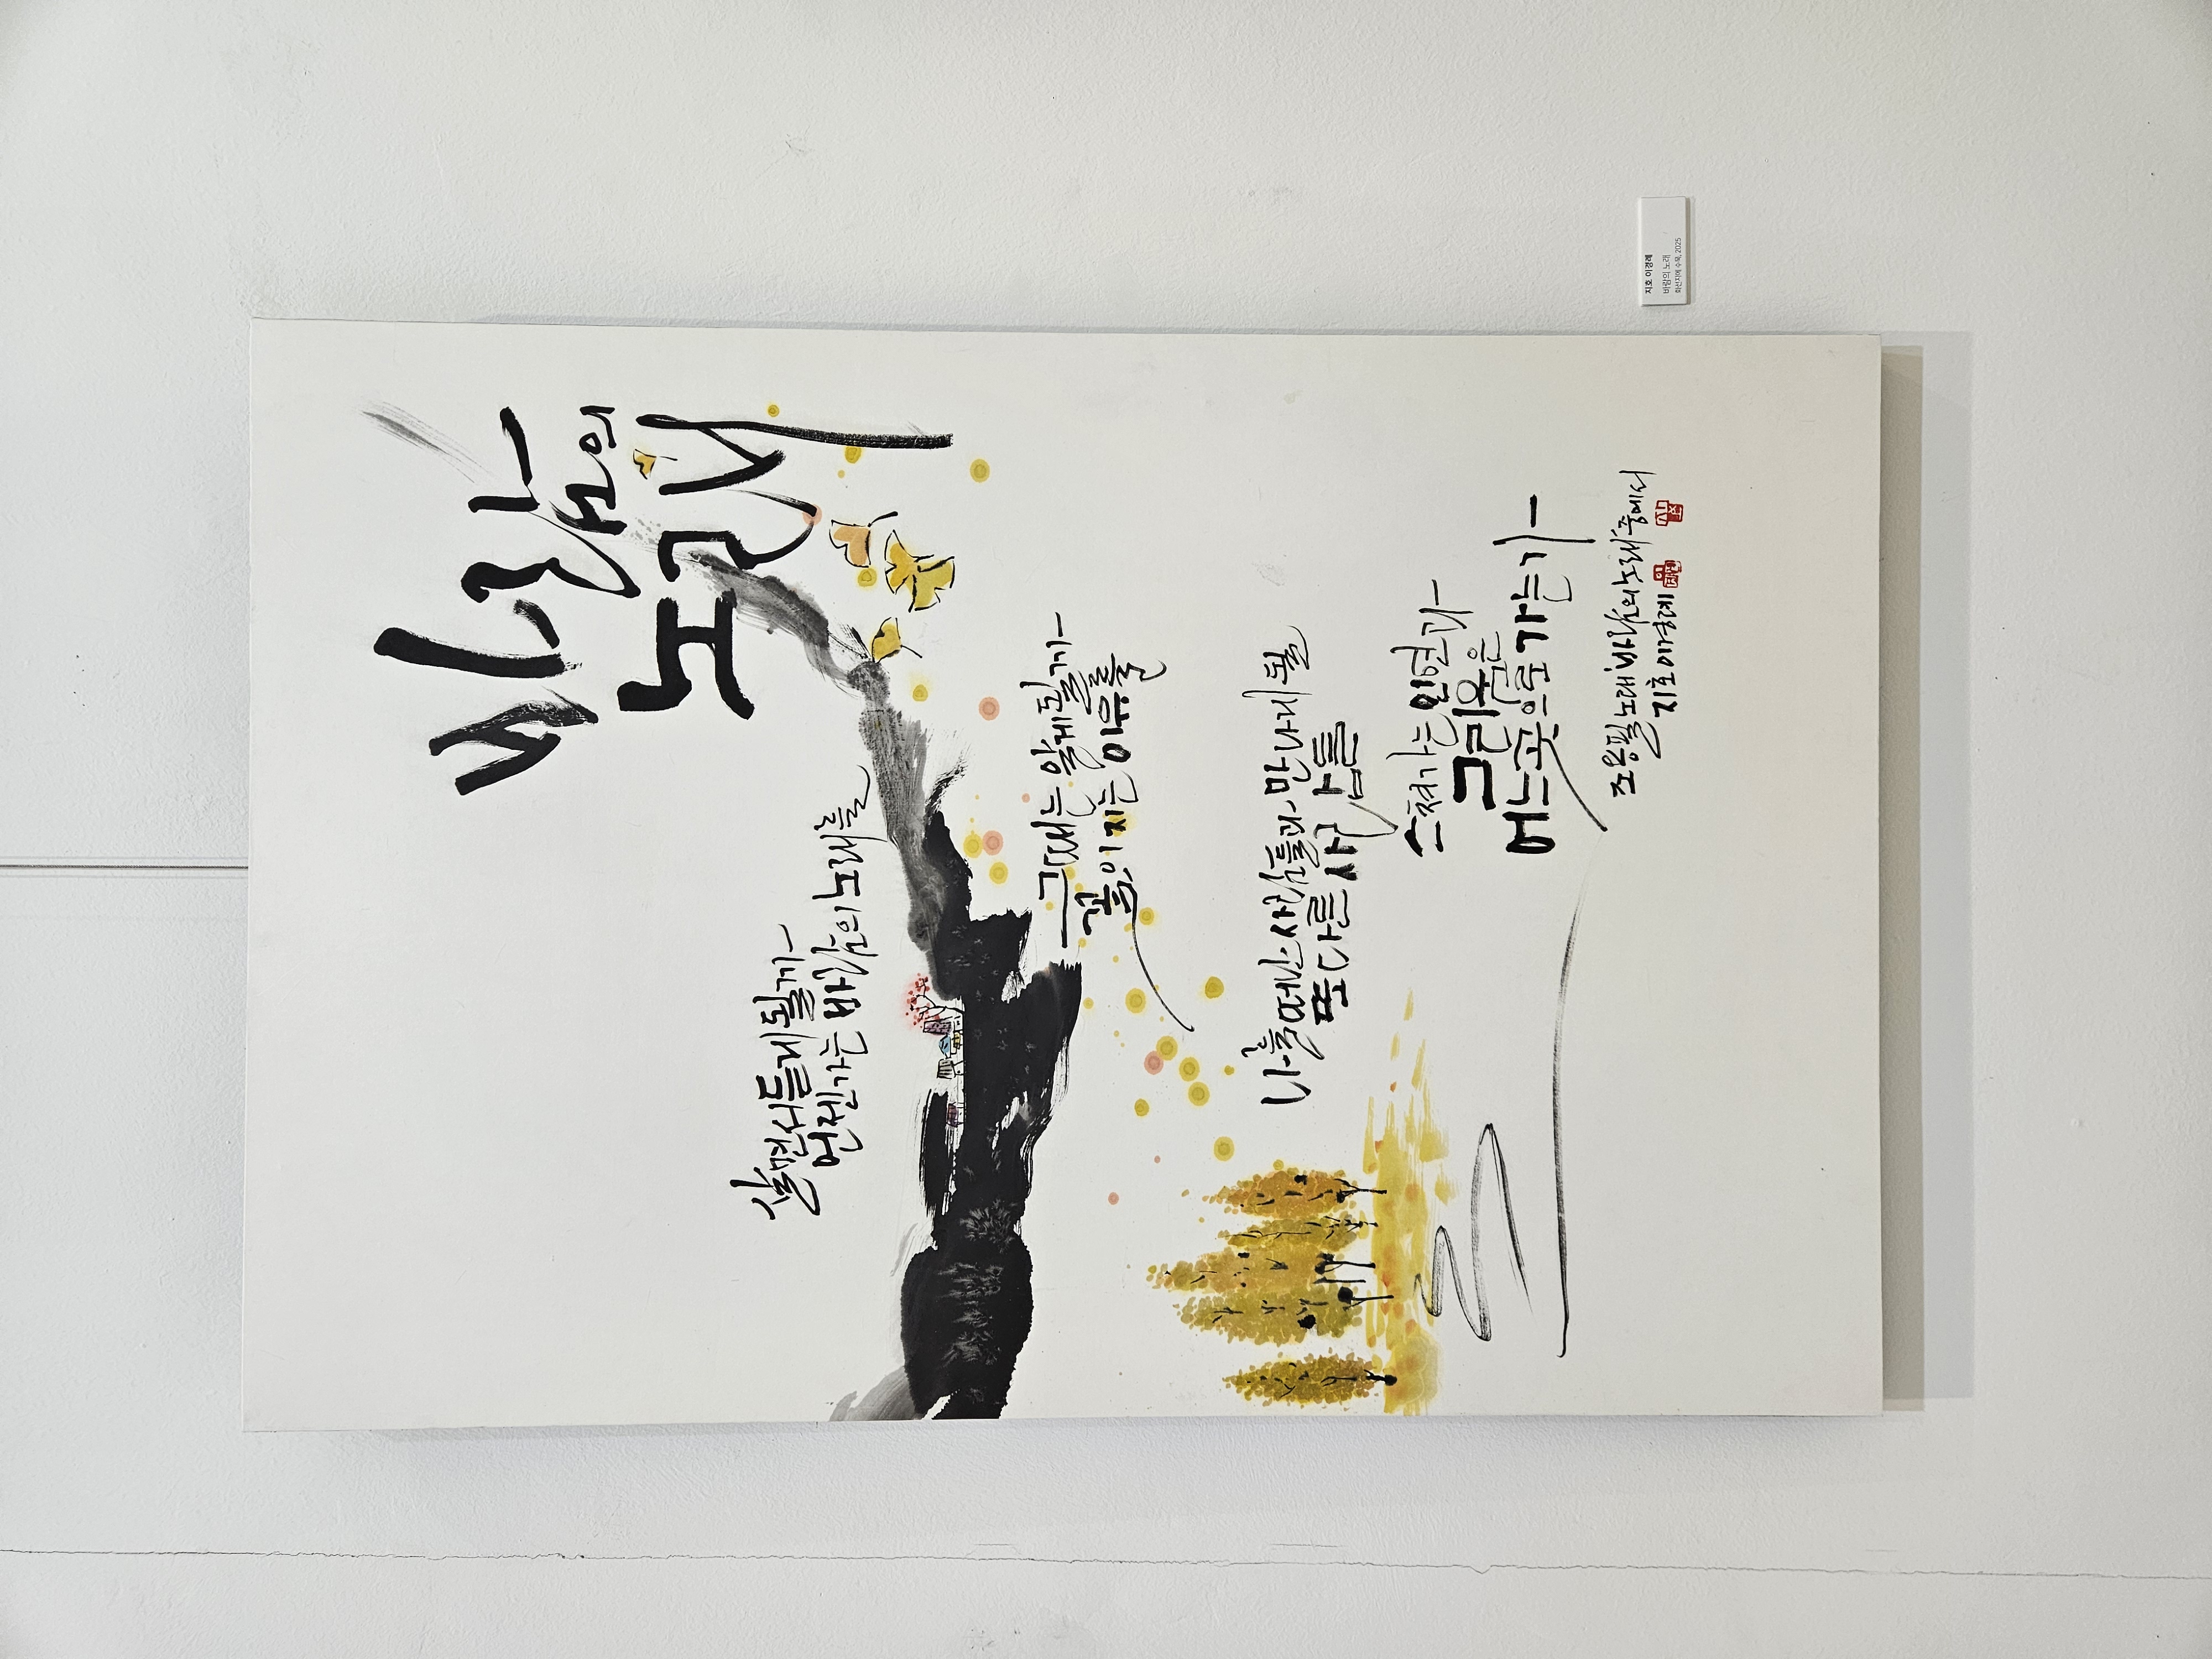 바람의
노래
살면서 듣게 될까
언젠가는 바람의 노래를
그때는 알게 될까
꽃이 지는 이유를
나를 떠난 사람들과 만나게 될
또 다른 사람들
스쳐가는 인연과
그리움은
어느 곳으로 가는가
조용필 노래 '바람의 노래' 중에서
지호 이경례
지호 이경례
바람의 노래
화선지에 수묵, 2025